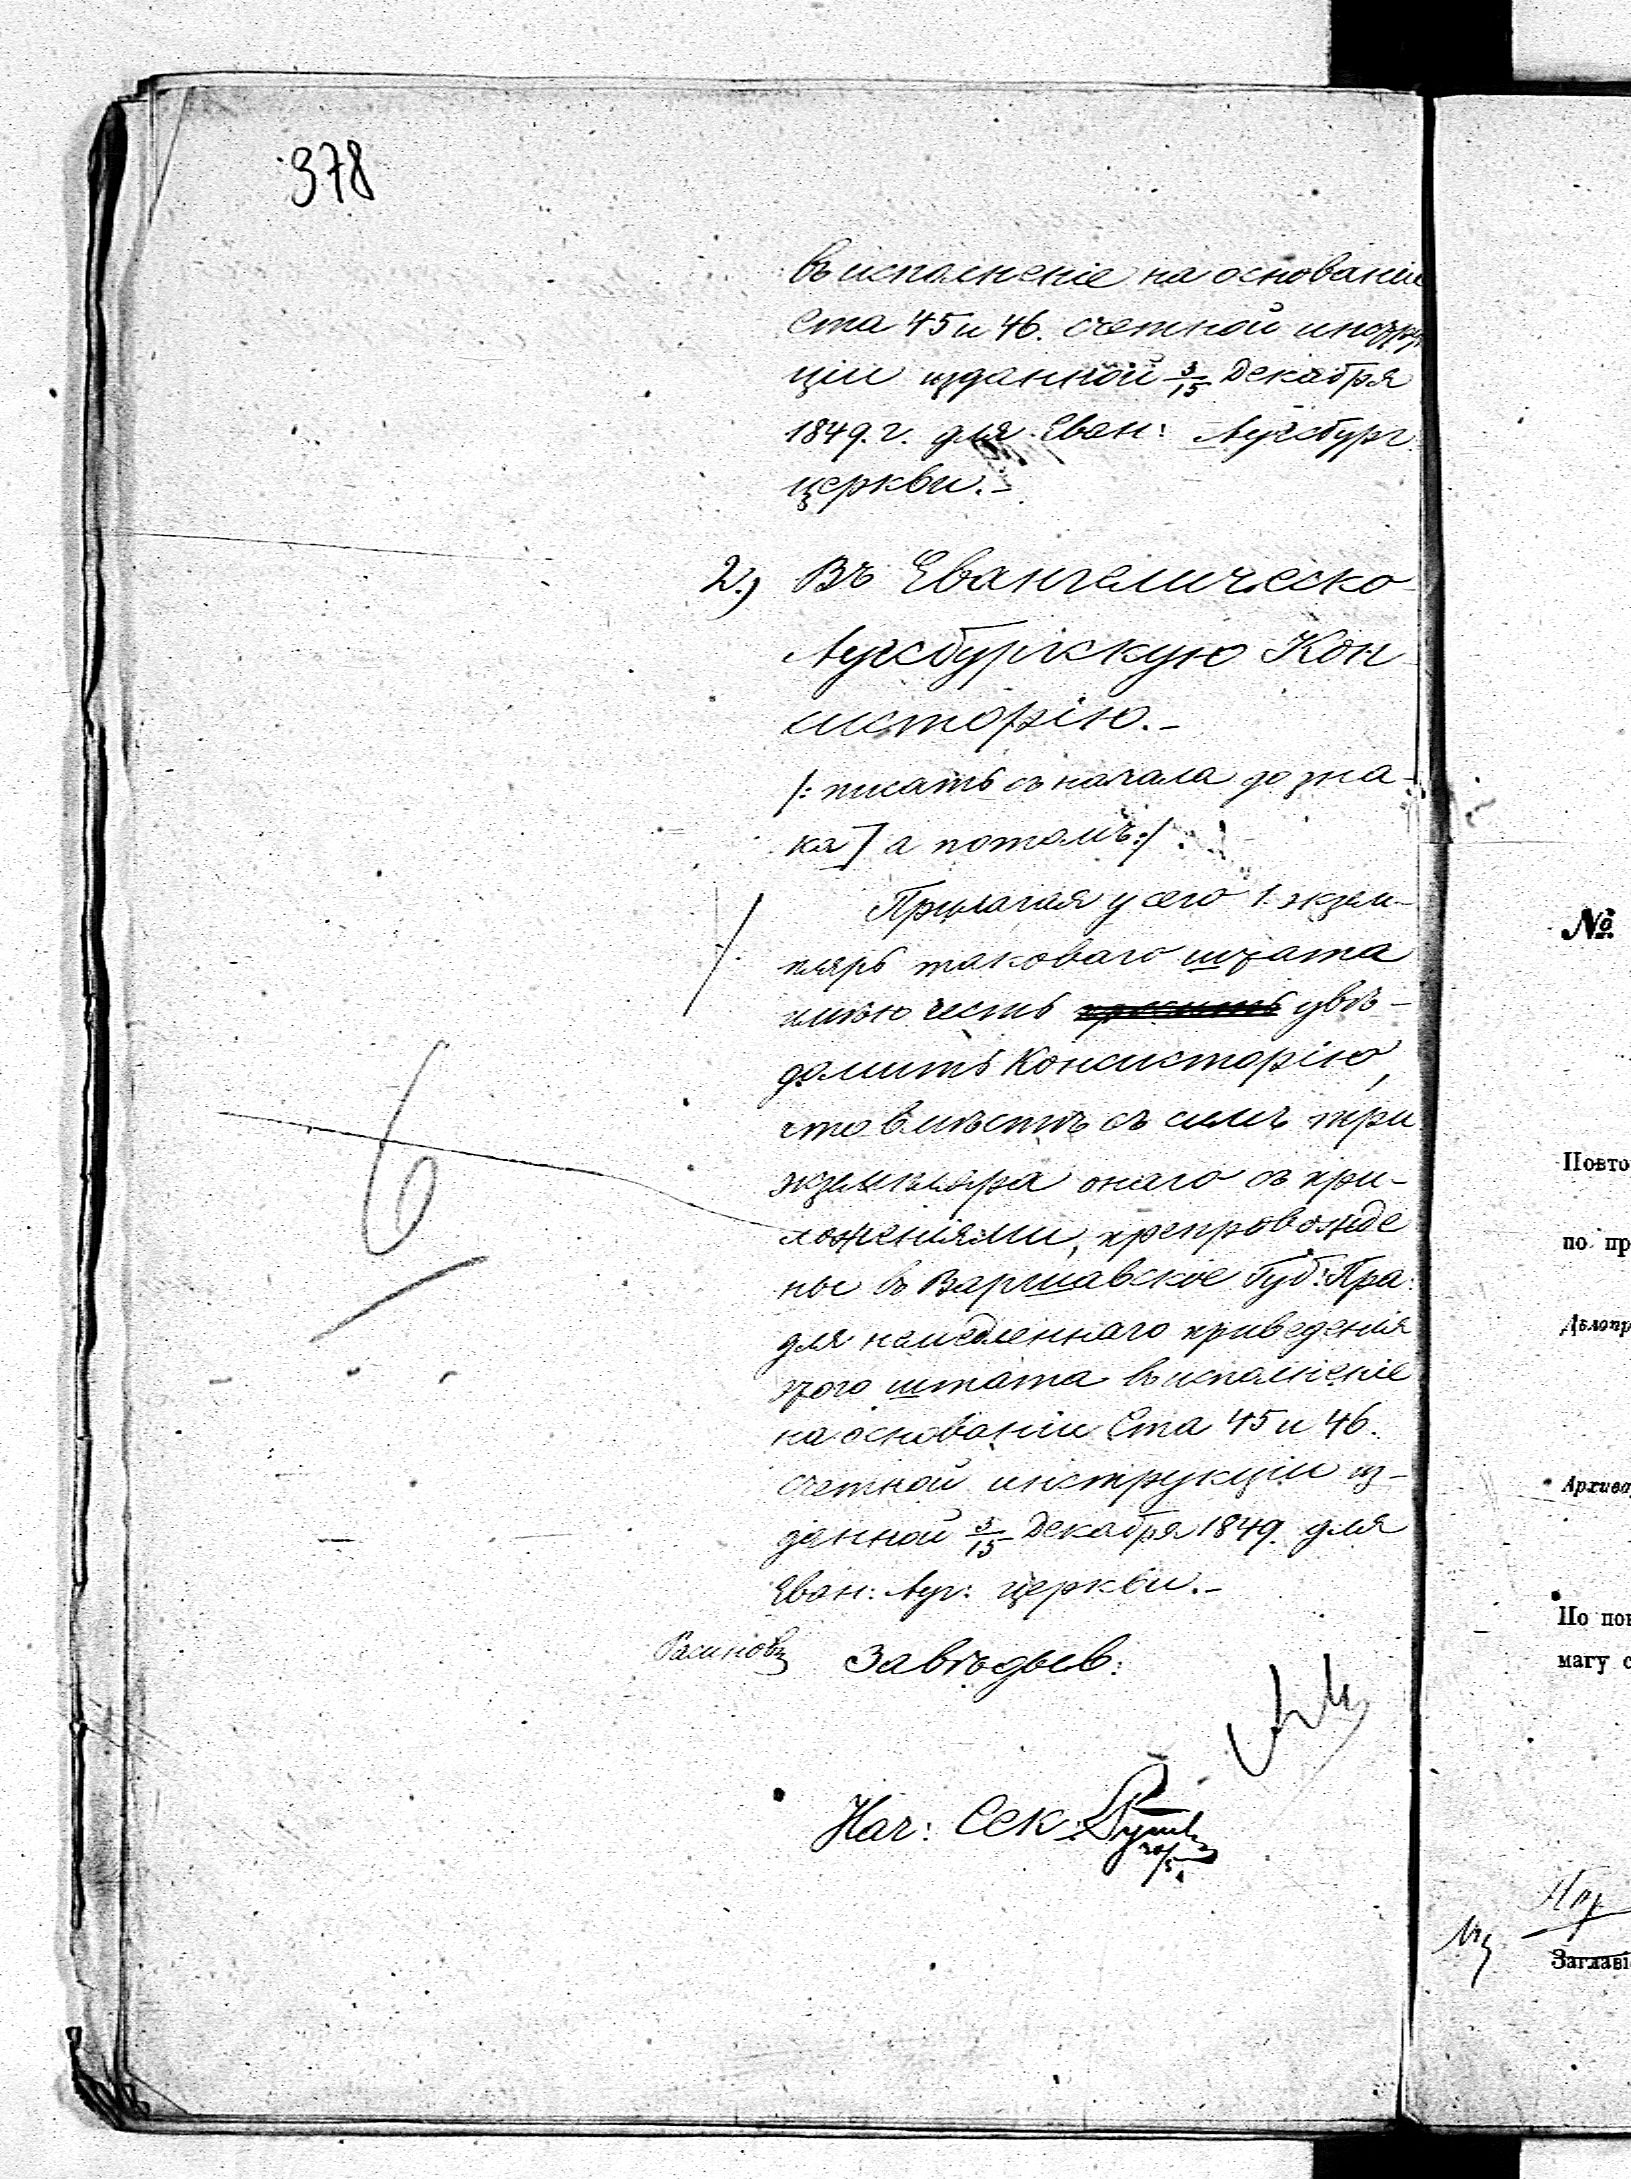 378
въ исполненіе на основаніи
Ста 45 и 46. счетной инстру
ціи изданной 3/15 Декабря
1849. г. для Еван: Аугсбург.
церкви.-
2.) Въ Евангелическо
Аугсбургскую Кон
систорію.-
/: писать съ начала до зна-
ка ] а потомъ:/
Прилагая у сего 1. экзем-
пляръ таковаго штата
имѣю честь увѣ-
домить Консисторію,
что вмѣстѣ съ симъ три
экземпляра онаго съ при-
ложеніями, препровожде
ны въ Варшавское Губ: Пра:
для немедленнаго приведенія
этого штата въ исполненіе
на основаніи Ста 45 и 46.
счетной инструкціи из-
данной 3/15 Декабря 1849. для
Еван: Ауг: церкви.-
Завѣдыв:
Нач: Сек:
№
Повто
по пр
Дѣлопр
Архив
По пов
магу с
Заглаві